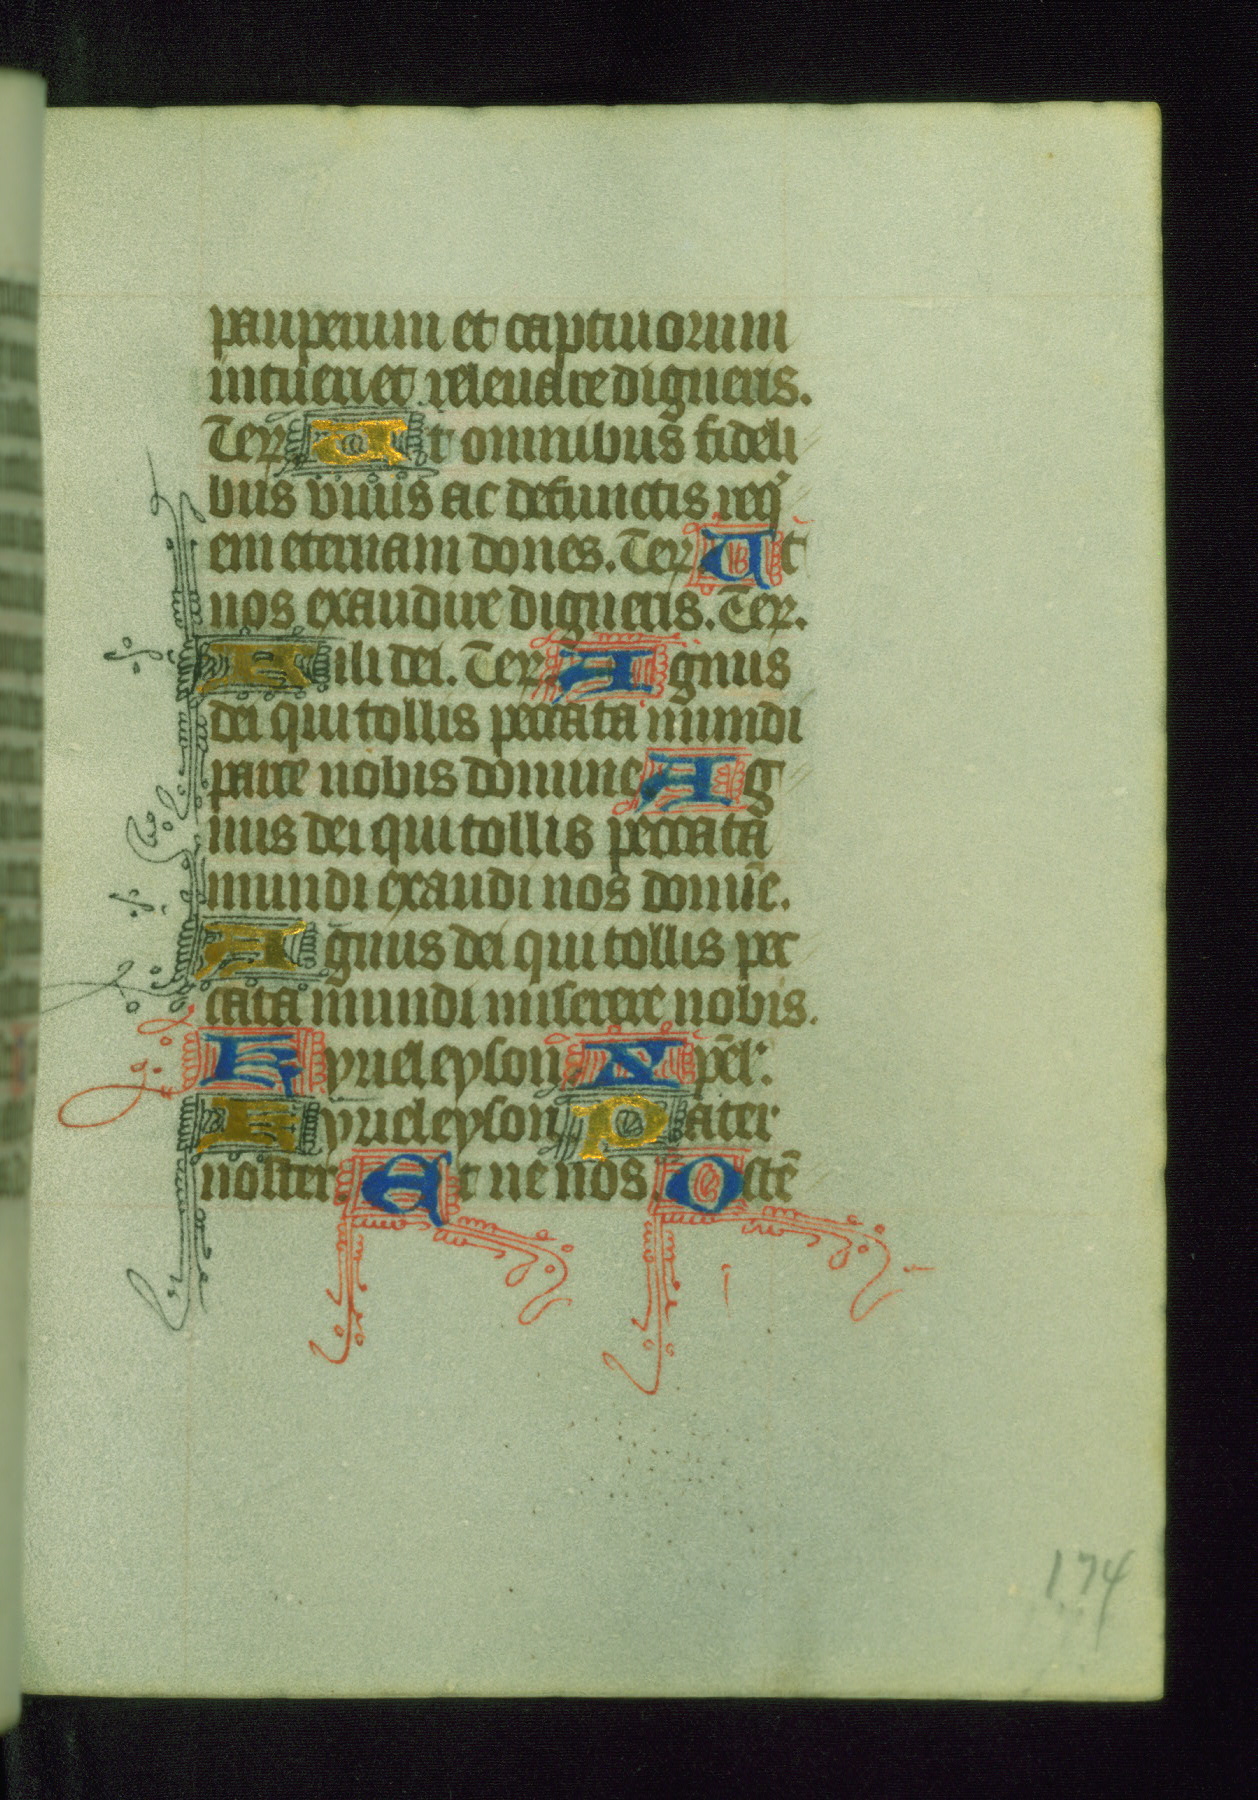 pauperum et captiuorum
intueri et releuare digneris.
Ter. Ut omnibus fideli
bus viuis ac defunctis requi
em eternam dones. Ter. Ut
nos exaudire digneris. Ter.
Fili dei. Ter. Agnus
dei qui tollis peccata mundi
parce nobis domine Ag
nus dei qui tollis peccata
mundi exaudi nos domĩe.
Agnus dei qui tollis pec
cata mundi miserere nobis.
Kyrieleyson Xp̃el':
Kyrieleyson Pater
noster. Et ne nos. Ostẽ
174